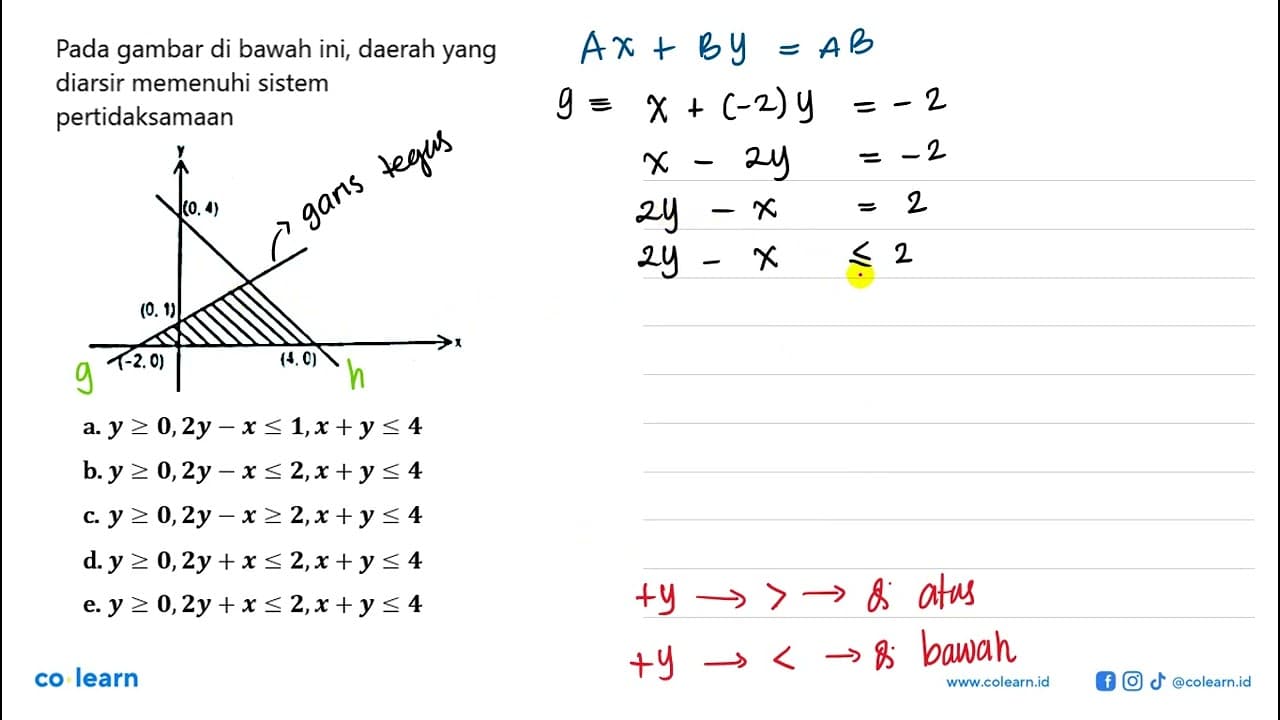 Pada gambar di bawah ini, daerah yang
diarsir memenuhi sistem
pertidaksamaan
y
(0, 4)
garis tegus
(0, 1)
x
(-2, 0)
(4, 0)
g
h
a. y ≥ 0, 2y − x ≤ 1, x + y ≤ 4
b. y ≥ 0, 2y − x ≤ 2, x + y ≤ 4
c. y ≥ 0, 2y − x ≥ 2, x + y ≤ 4
d. y ≥ 0, 2y + x ≤ 2, x + y ≤ 4
e. y ≥ 0, 2y + x ≤ 2, x + y ≤ 4
co learn
Ax + By = AB
g ≡ x + (-2) y = - 2
x - 2y = -2
2y - x = 2
2y - x ≤ 2
+y → > → di atas
+y → < → di bawah
www.colearn.id
@colearn.id